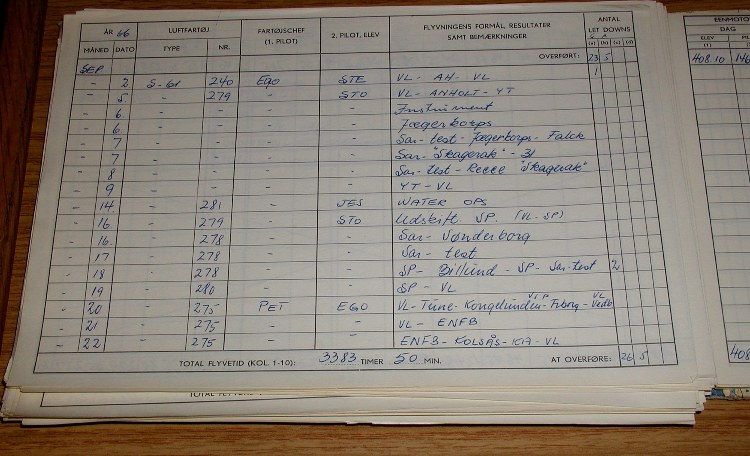 ÅR 66 LUFTFARTØJ FARTØJSCHEF (1. PILOT) 2. PILOT, ELEV FLYVNINGENS FORMÅL, RESULTATER SAMT BEMÆRKNINGER ANTAL LET DOWNS
MÅNED DATO TYPE NR. (a) (b) (c) (d)
SEP OVERFØRT: 23 5
- 2 S-61 240 EGO STE VL - AH - VL 1
- 5 - 279 - STO VL - ANHOLT - YT
- 6 - - - - Instrument
- 6 - - - - Jægerkorps
- 7 - - - - Sar-test-Jægerkorps-Falck
- 7 - - - - Sar-"Skagerak"-31
- 8 - - - - Sar-test-Recce "Skagerak"
- 9 - - - - YT-VL
- 14 - 281 - JES WATER OPS
- 16 - 279 - STO Udskift SP. (VL-SP)
- 16. - 278 - - Sar-Sønderborg
- 17 - 278 - - Sar-test
- 18 - 278 - - SP-Billund-SP-Sar-test 2
- 19 - 280 - - SP-VL
- 20 - 275 PET EGO VL-Tune-Kongelunden-
- 21 - 275 - - VL-ENFB
- 22 - 275 - - ENFB-KOLSÅS- -VL
TOTAL FLYVETID (KOL. 1-10): 3383 TIMER 50 MIN. AT OVERFØRE: 26 5
TOTAL
EENMOTO
DAG
ELEV
(1)
408.10 146
408